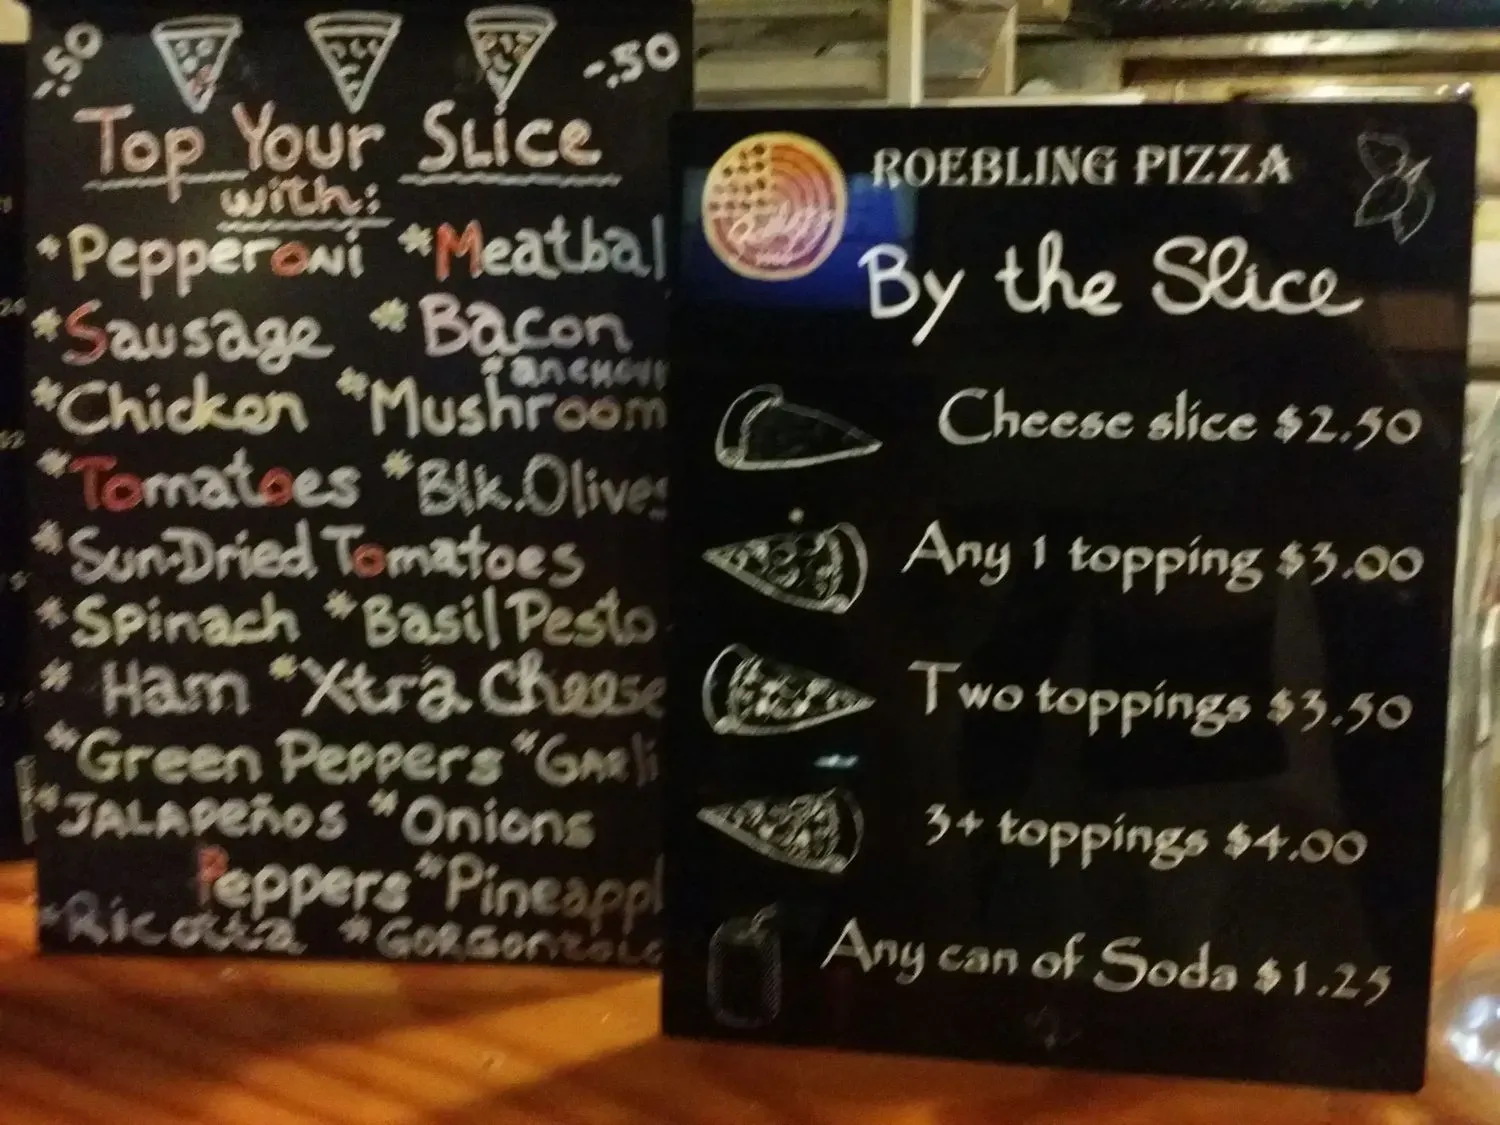 -.50 -.50
Top Your Slice
with:
*Pepperoni *Meatbal
*Sausage *Bacon
*anchov
*Chicken *Mushroom
*Tomatoes *Blk.Olives
*Sun-Dried Tomatoes
*Spinach *Basil Pesto
*Ham *Xtra Cheese
*Green Peppers *Garli
*JALAPEÑOS *Onions
Peppers *Pineappl
*Ricotta *GORGONZOLA
ROEBLING PIZZA
By the Slice
Cheese slice $2.50
Any 1 topping $3.00
Two toppings $3.50
3+ toppings $4.00
Any can of Soda $1.25